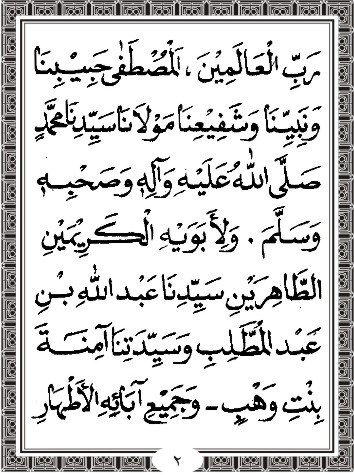 رَبِّ الْعَالَمِيْنَ ، اَلْمُصْطَفٰى حَبِيْبِنَا
وَنَبِيِّنَا وَشَفِيْعِنَا مَوْلَانَا سَيِّدِنَا مُحَمَّدٍ
صَلَّى اللّٰهُ عَلَيْهِ وَآلِهٖ وَصَحْبِهٖ
وَسَلَّمَ . وَلِأَبَوَيْهِ الْكَرِيْمَيْنِ
الطَّاهِرَيْنِ سَيِّدِنَا عَبْدِ اللّٰهِ بْنِ
عَبْدِ الْمُطَّلِبِ وَسَيِّدَتِنَا آمِنَةَ
بِنْتِ وَهْبٍ - وَجَمِيْعِ آبَائِهِ الْأَطْهَارِ
٢